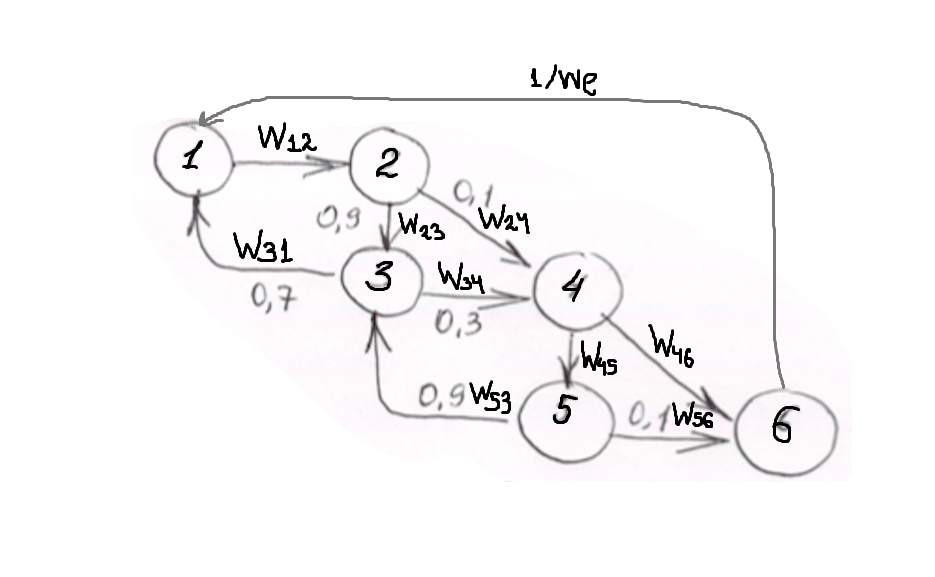 1/We
1
W12
2
0,1
W24
0,9
W23
W31
3
W34
4
0,7
0,3
W45
W46
0,9
W53
5
0,1
W56
6